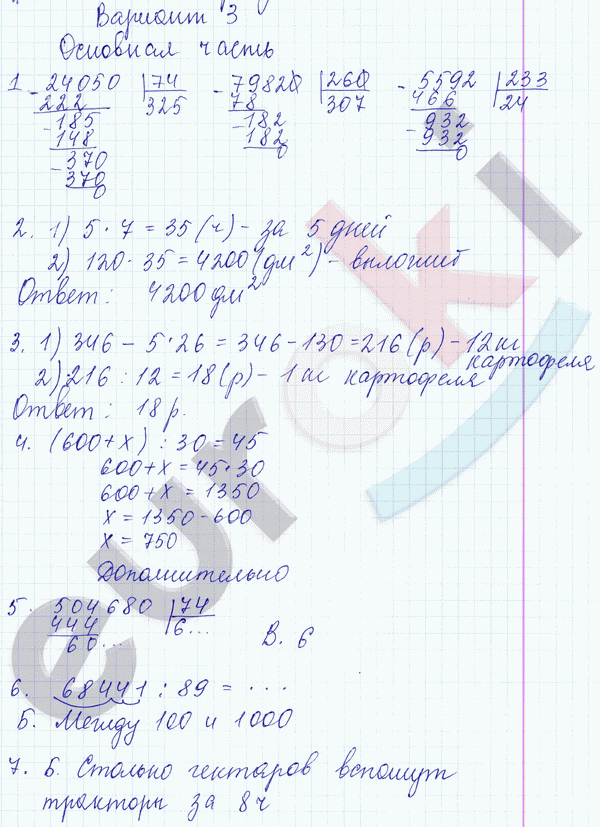 Вариант 3
Основная часть
1 - 24050 | 74 - 79820 | 260 - 5592 | 233
222 325 78 307 466 24
- 185 - 182 - 932
148 182 932
- 370 0 0
370
0
2. 1) 5 · 7 = 35 (ч) - за 5 дней
2) 120 · 35 = 4200 (дм²) - выложит
Ответ: 4200 дм²
3. 1) 346 - 5·26 = 346 - 130 = 216 (р) - 12 кг
картофеля
2) 216 : 12 = 18 (р) - 1 кг картофеля
Ответ: 18 р.
4. (600+x) : 30 = 45
600+x = 45·30
600+x = 1350
x = 1350-600
x = 750
Дополнительно
5. 504680 | 74
444 6...
60... В. 6
6. 68441 : 89 = ...
Б. Между 100 и 1000
7. Б. Столько гектаров вспашут
тракторы за 8 ч
euroki